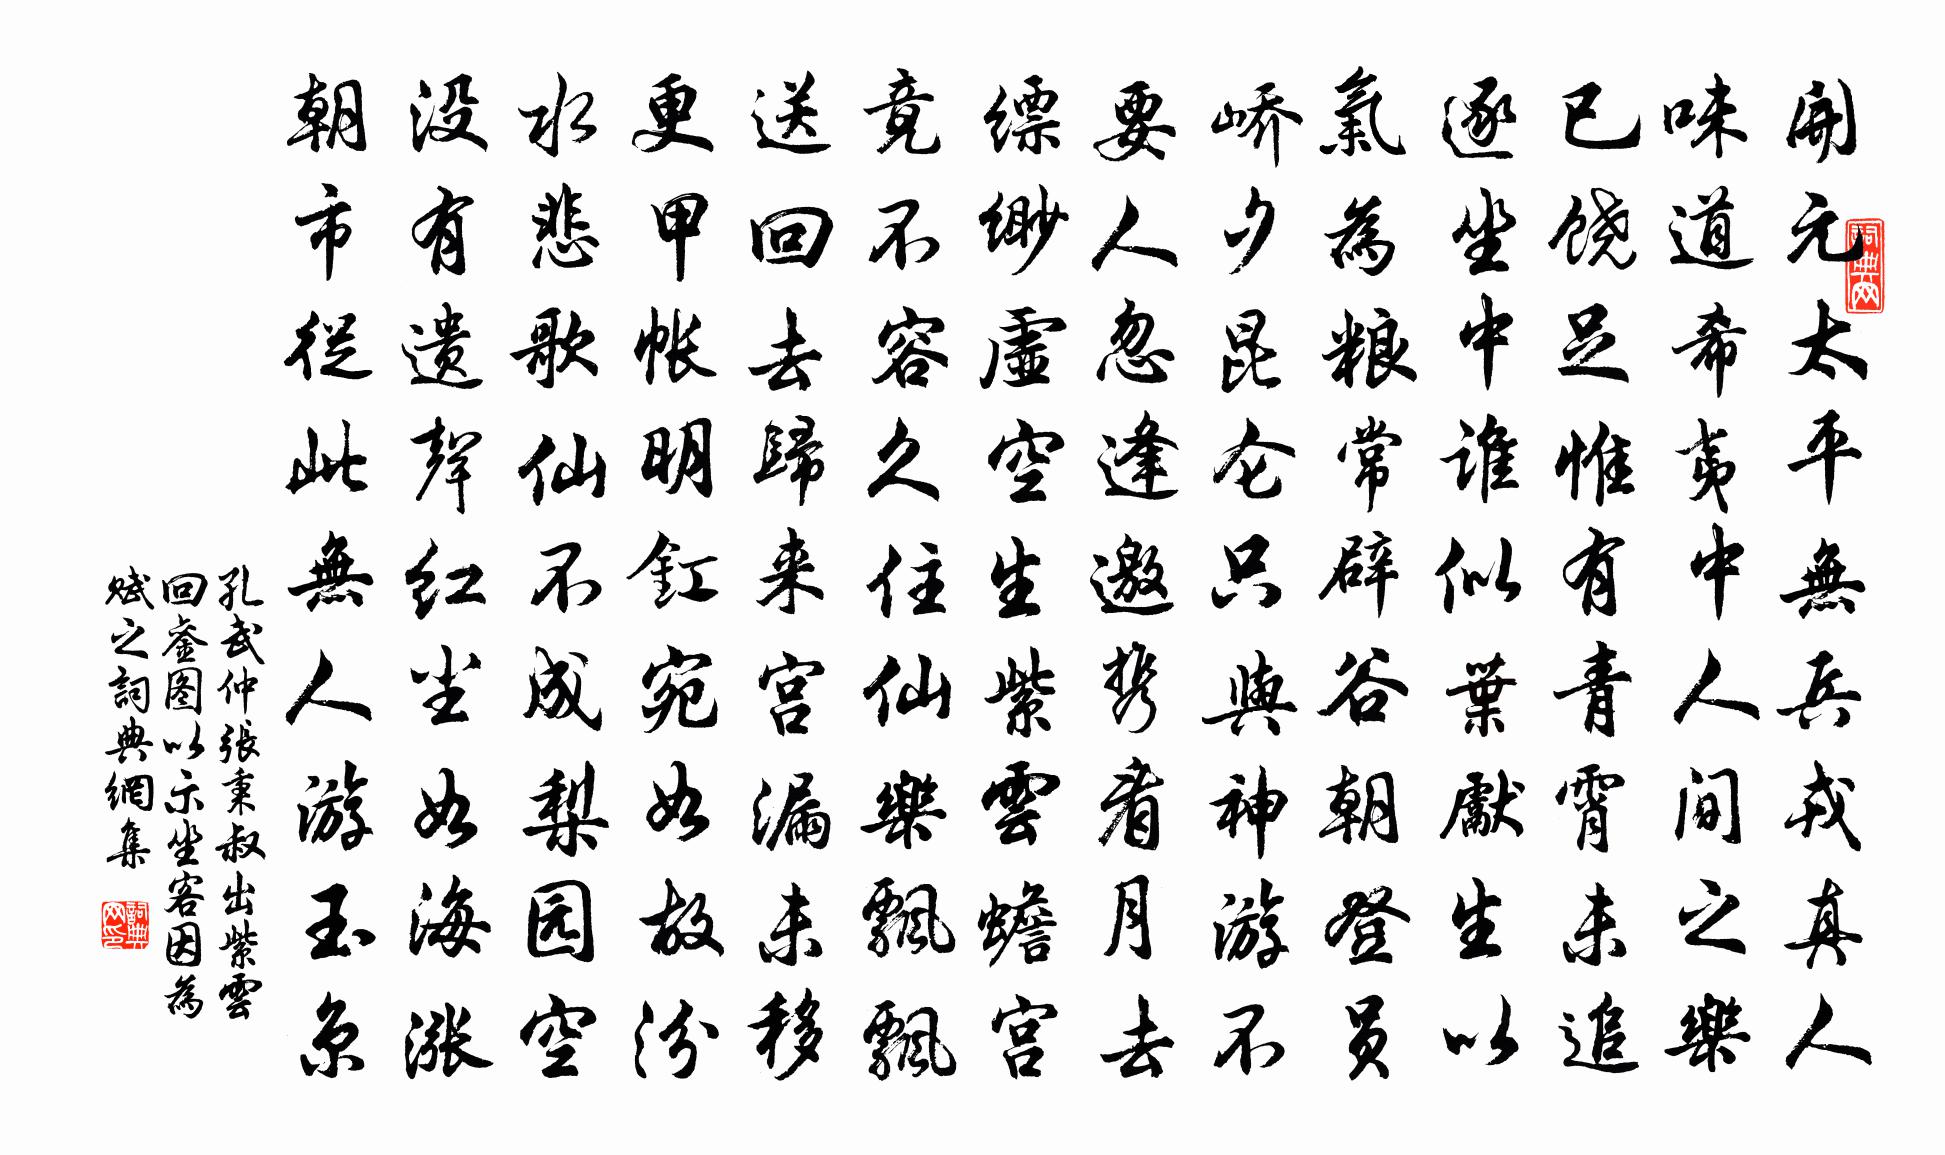 開元太平無兵戎真人
味道希夷中人间之樂
已饶足惟有青霄未追
逐坐中谁似葉獻生以
氣為粮常辟谷朝登员
峤夕昆仑只與神游不
要人忽逢邀携看月去
缥缈虚空生紫雲蟾宫
竟不容久住仙樂飄飄
送回去歸来宫漏未移
更甲帐明釭宛如故汾
水悲歌仙不成梨园空
没有遗聲红尘如海漲
朝市從此無人游玉京
孔武仲張秉叔出紫雲
回銮图以示坐客因為
赋之詞典網集
詞典网
詞典网印